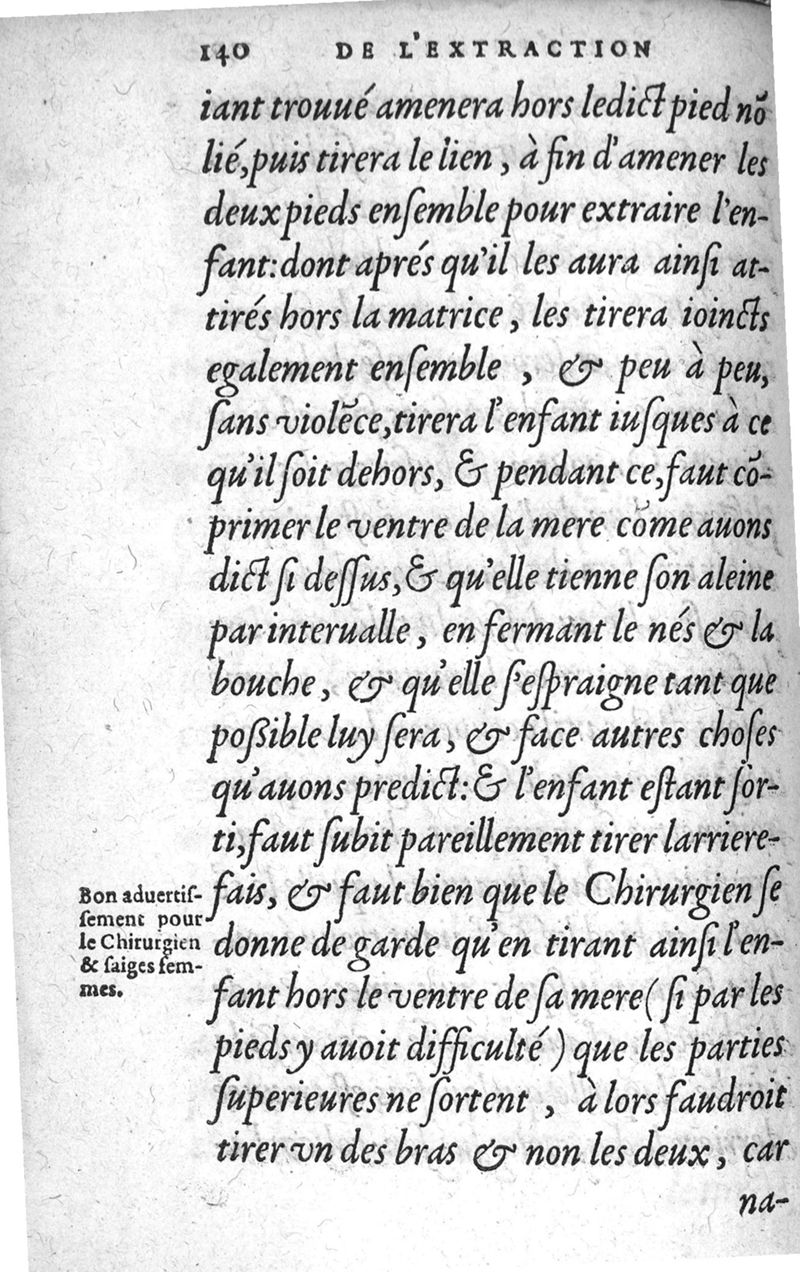 140 DE L'EXTRACTION
iant trouué amenera hors ledict pied nõ
lié, puis tirera le lien, à fin d'amener les
deux pieds enſemble pour extraire l'en-
fant: dont aprés qu'il les aura ainſi at-
tirés hors la matrice, les tirera ioincts
egalement enſemble, & peu à peu,
ſans violẽce, tirera l'enfant iuſques à ce
qu'il ſoit dehors, & pendant ce, faut cõ-
primer le ventre de la mere cõme auons
dict ſi deſſus, & qu'elle tienne ſon aleine
par interualle, en fermant le nés & la
bouche, & qu'elle ſ'eſpraigne tant que
poſsible luy ſera, & face autres choſes
qu'auons predict: & l'enfant eſtant ſor-
ti, faut ſubit pareillement tirer larriere-
fais, & faut bien que le Chirurgien ſe
donne de garde qu'en tirant ainſi l'en-
fant hors le ventre de ſa mere (ſi par les
pieds y auoit difficulté) que les parties
ſuperieures ne ſortent, à lors faudroit
tirer vn des bras & non les deux, car
na-
Bon aduertiſ-
ſement pour
le Chirurgien
& ſaiges fem-
mes.